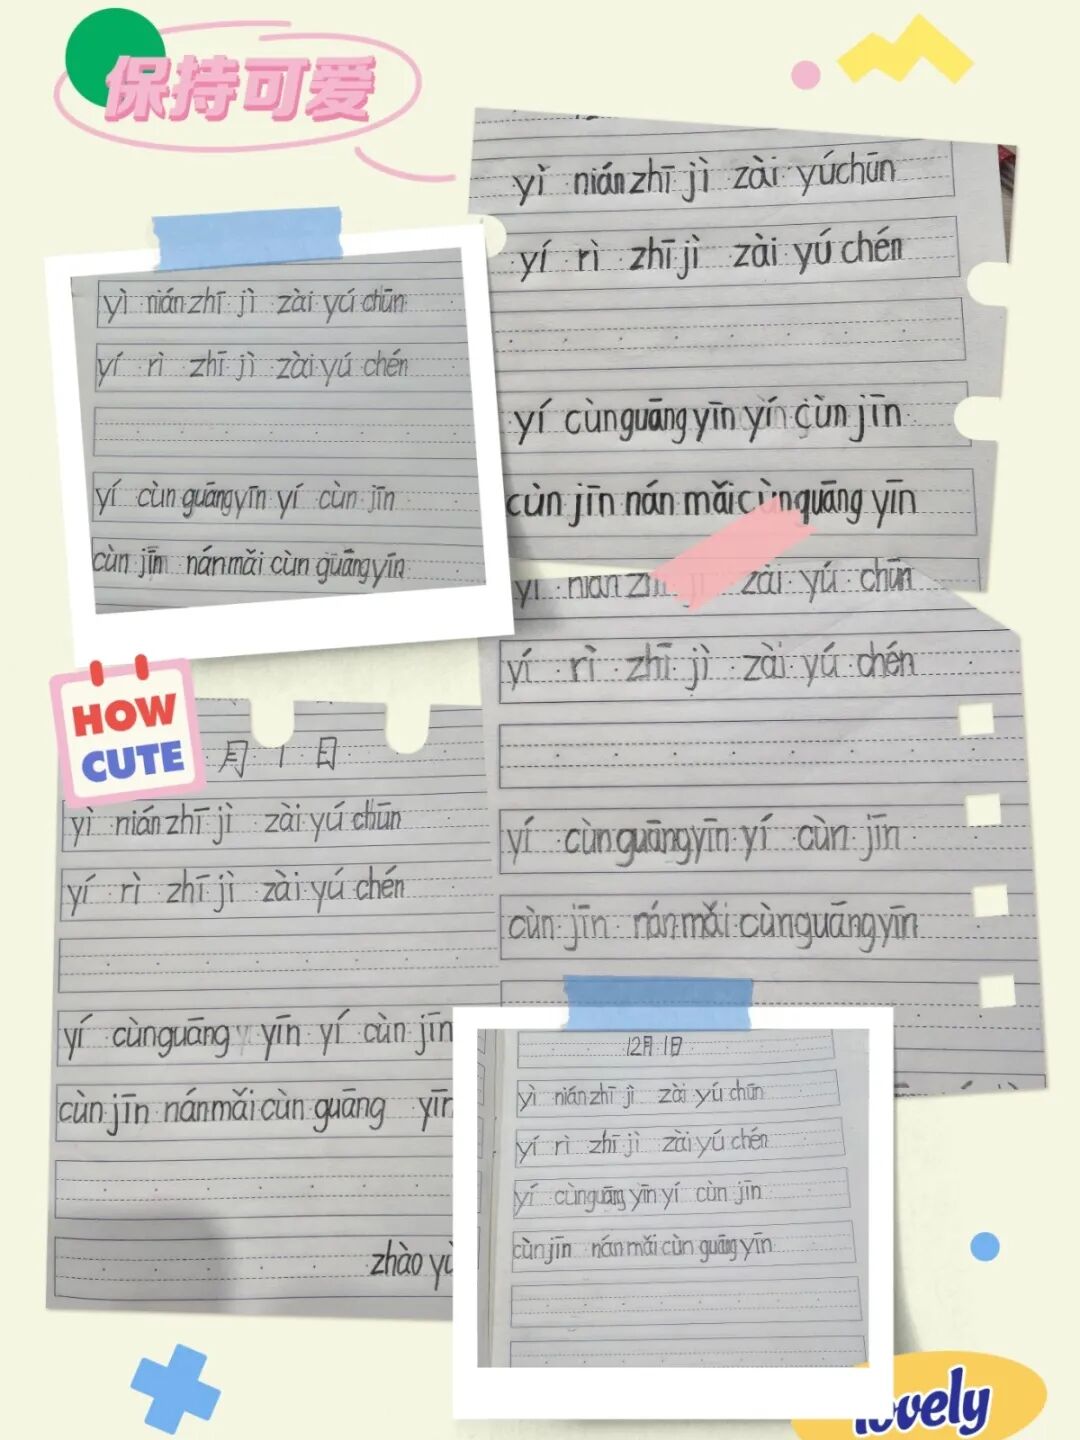 保持可爱
yì nián zhī jì zài yú chūn
yí rì zhī jì zài yú chén
yí cùn guāng yīn yí cùn jīn
cùn jīn nán mǎi cùn guāng yīn
yì nián zhī jì zài yú chūn
yí rì zhī jì zài yú chén
yí cùn guāng yīn yí cùn jīn
cùn jīn nán mǎi cùn guāng yīn
HOW
CUTE
月1日
yì nián zhī jì zài yú chūn
yí rì zhī jì zài yú chén
yí cùn guāng yīn yí cùn jīn
cùn jīn nán mǎi cùn guāng yīn
zhào
zài yú chūn
yí rì zhī jì zài yú chén
yí cùn guāng yīn yí cùn jīn
cùn jīn nán mǎi cùn guāng yīn
12月1日
yì nián zhī jì zài yú chūn
yí rì zhī jì zài yú chén
yí cùn guāng yīn yí cùn jīn
cùn jīn nán mǎi cùn guāng yīn
lovely